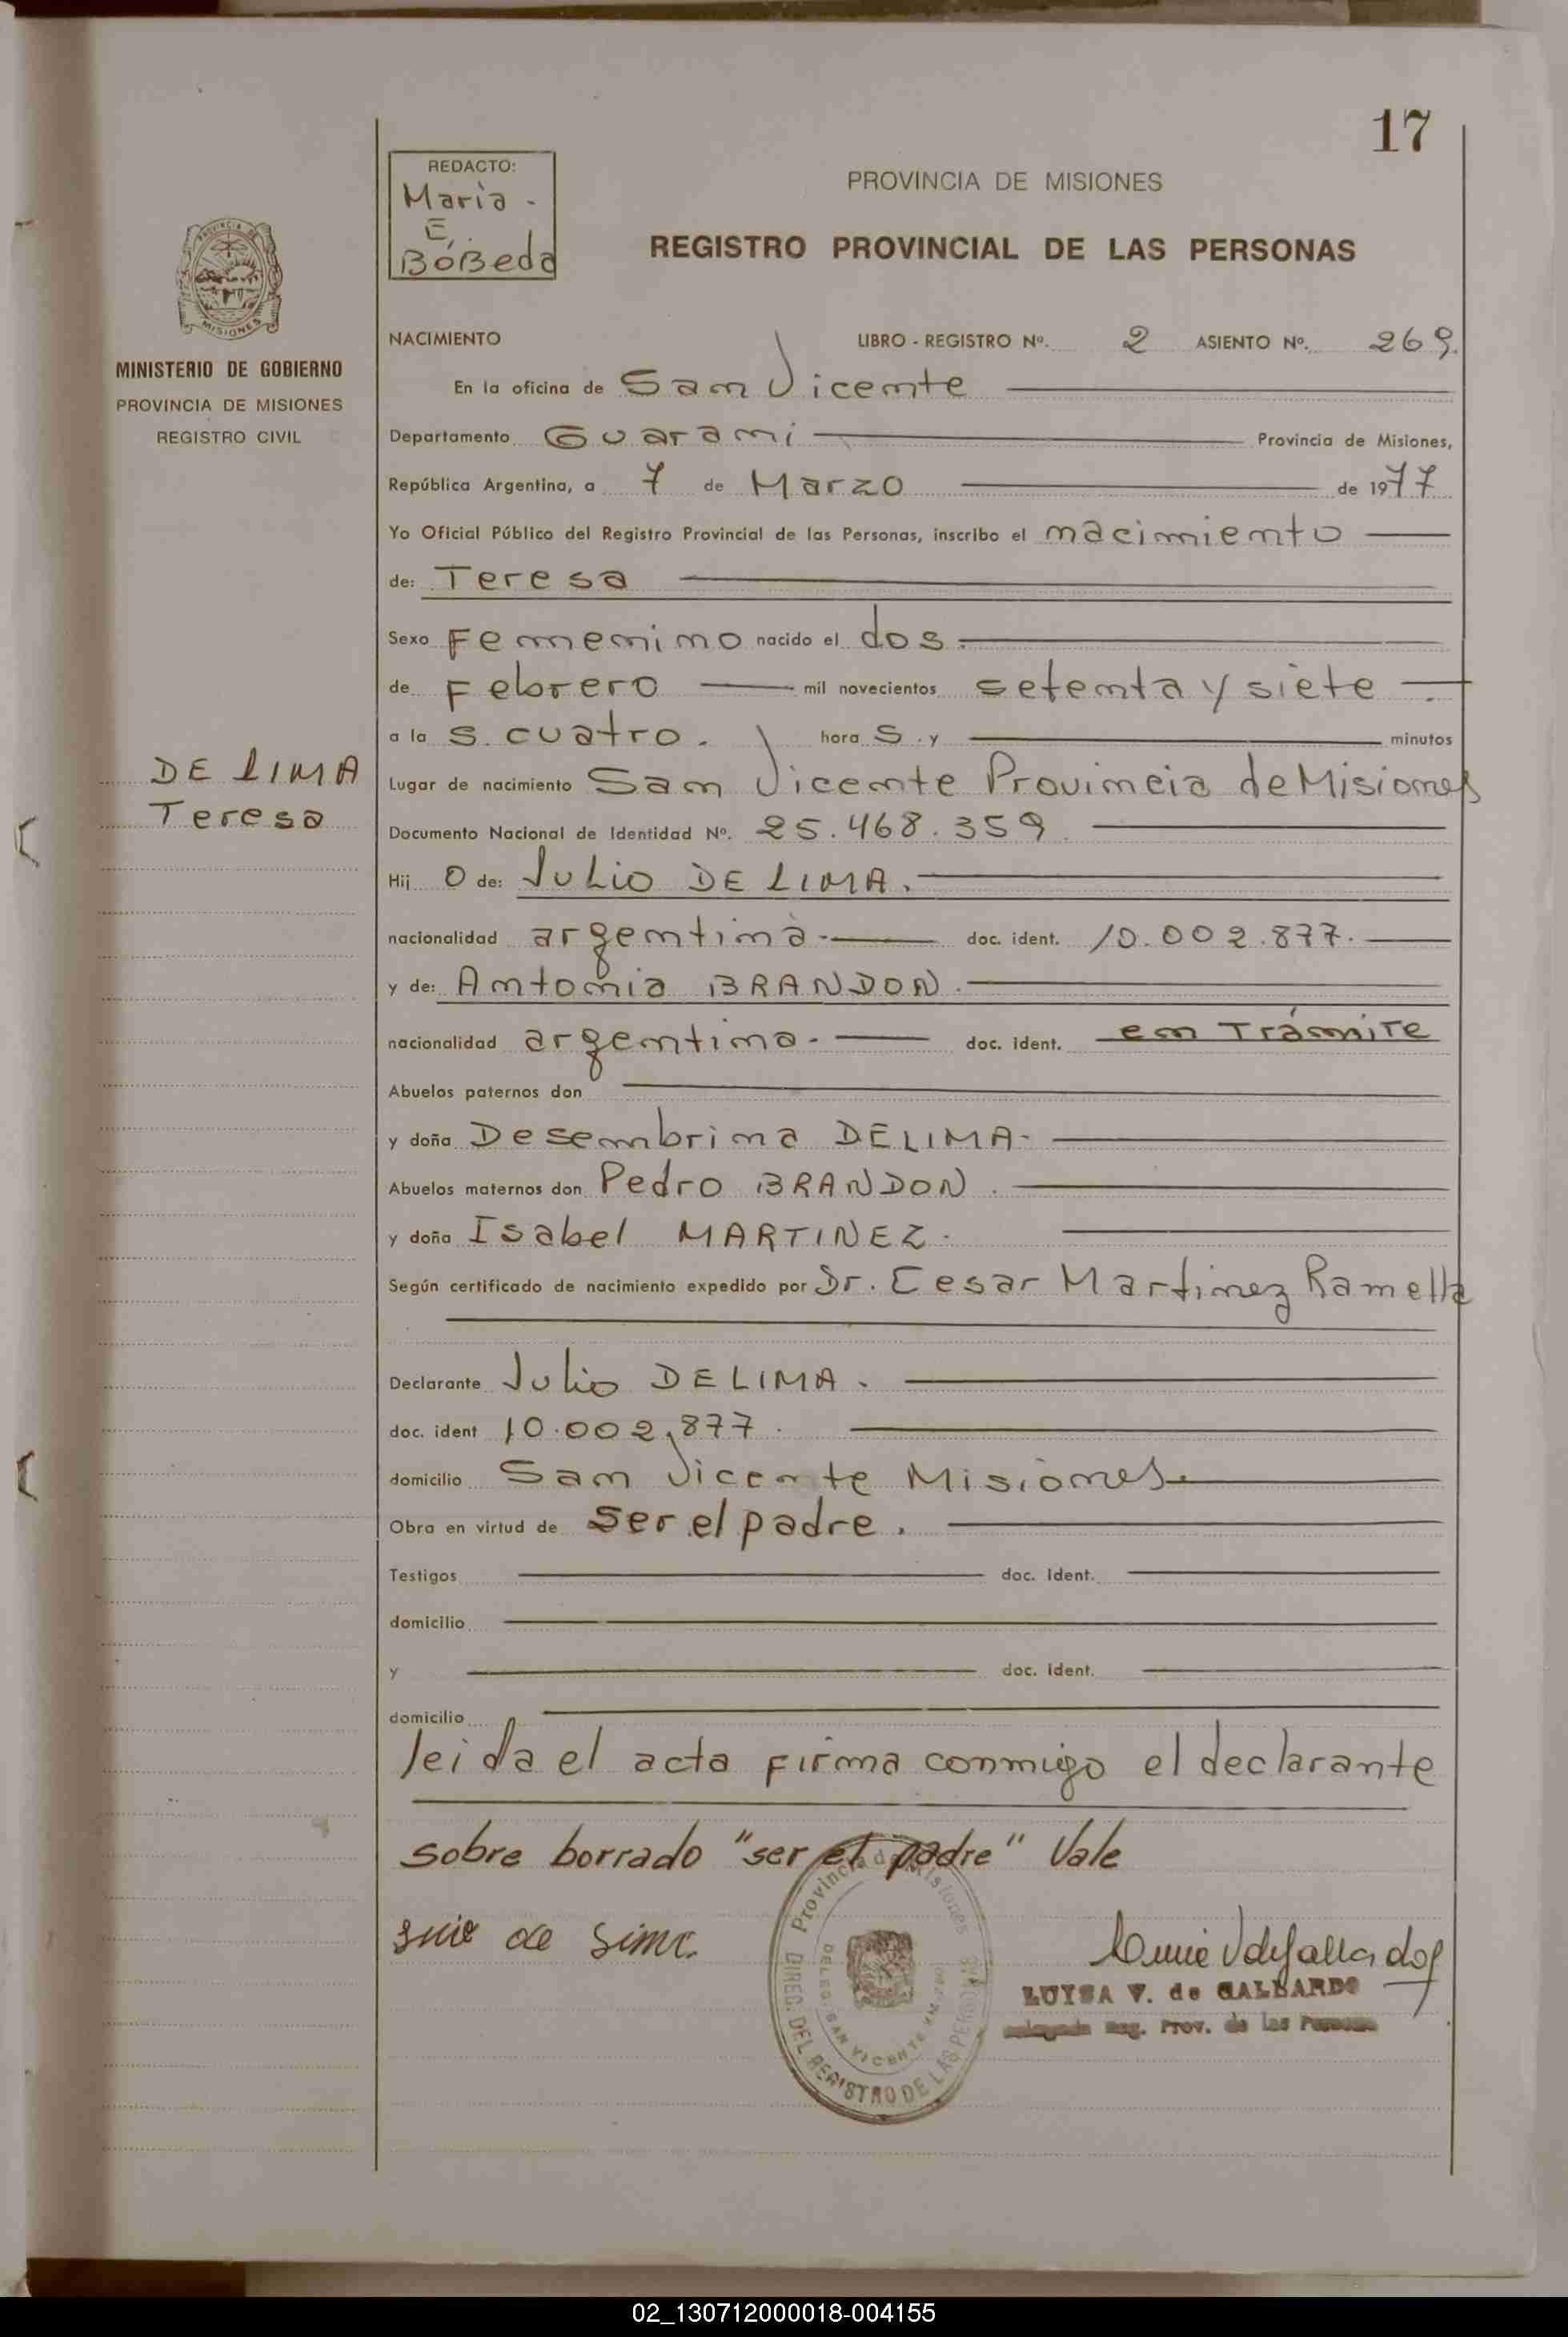 17
REDACTO:
Maria -
E.
BóBeda
PROVINCIA DE MISIONES
REGISTRO PROVINCIAL DE LAS PERSONAS
MISIONES
MINISTERIO DE GOBIERNO
PROVINCIA DE MISIONES
REGISTRO CIVIL
NACIMIENTO LIBRO - REGISTRO Nº. 2 ASIENTO Nº. 269.
En la oficina de San Vicente
Departamento Guarani Provincia de Misiones,
República Argentina, a 7 de Marzo de 1977
Yo Oficial Público del Registro Provincial de las Personas, inscribo el nacimiento
de: Teresa
Sexo Femenino nacido el dos.
de Febrero mil novecientos setenta y siete
a la s. cuatro. hora s. y minutos
DE LIMA
Teresa
Lugar de nacimiento San Vicente Provincia de Misiones
Documento Nacional de Identidad Nº. 25.468.359
Hij o de: Julio DE LIMA.
nacionalidad argentina. doc. ident. 10.002.877.
y de: Antonia BRANDON.
nacionalidad argentina. doc. ident. en Trámite
Abuelos paternos don
y doña Desembrina DE LIMA-
Abuelos maternos don Pedro BRANDON.
y doña Isabel MARTINEZ.
Según certificado de nacimiento expedido por Dr. Cesar Martinez Ramella
Declarante Julio DE LIMA.
doc. ident 10.002.877.
domicilio San Vicente Misiones.
Obra en virtud de ser el padre.
Testigos doc. ident.
domicilio
y doc. ident.
domicilio
leida el acta firma conmigo el declarante
sobre borrado "ser el padre" Vale
Provincia de Misiones
DIREC. DEL REGISTRO DE LAS PERSONAS
SAN VICENTE
LUISA V. de GALLARDO
Reg. Prov. de las Personas
02_130712000018-004155